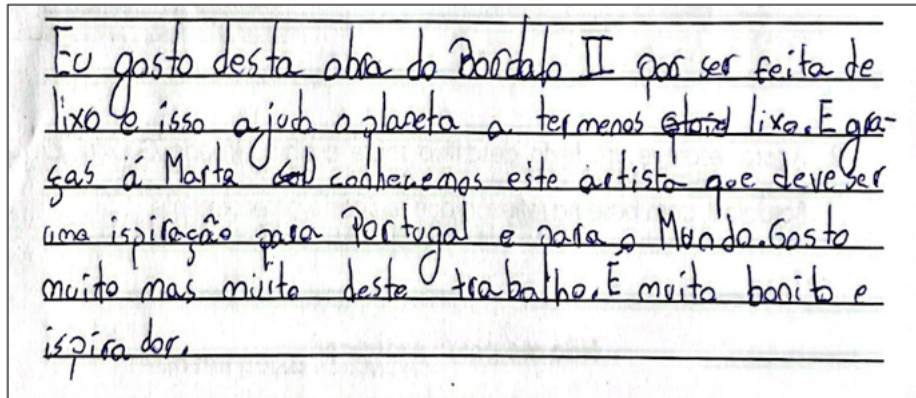 Eu gosto desta obra do Bordalo II por ser feita de
lixo e isso ajuda o planeta a ter menos lixo. E gra-
ças á Marta conhecemos este artista que deve ser
uma ispiração para Portugal e para o Mundo. Gosto
muito mas muito deste trabalho. É muito bonito e
ispirador.